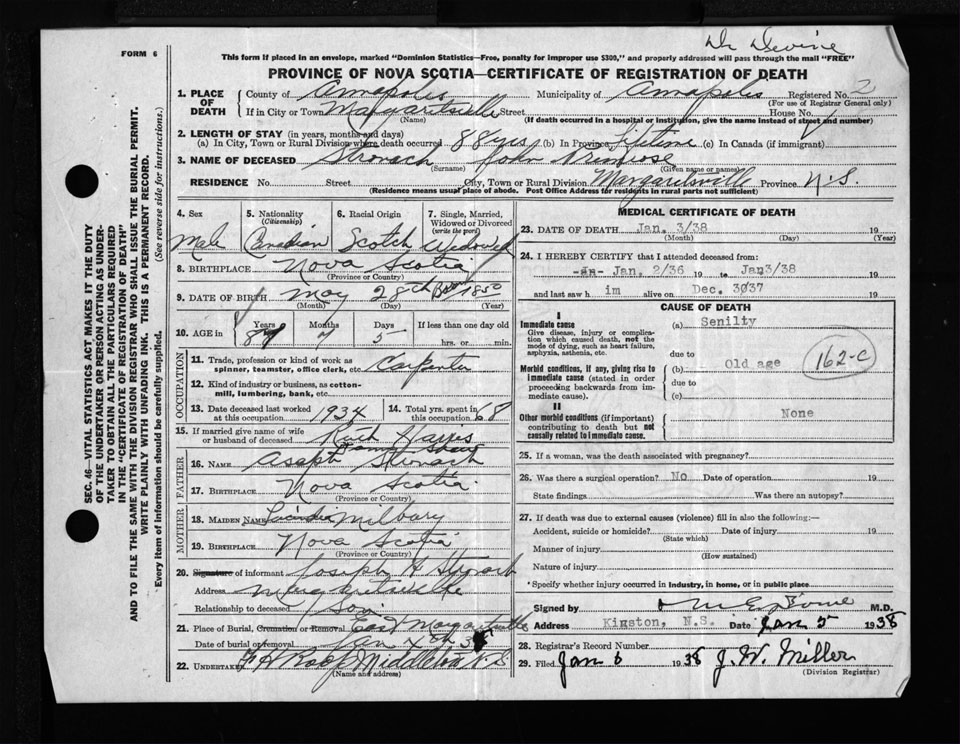 FORM 6
Dr Devine
This form if placed in an envelope, marked "Dominion Statistics—Free, penalty for improper use $300," and properly addressed will pass through the mail "FREE"
PROVINCE OF NOVA SCOTIA—CERTIFICATE OF REGISTRATION OF DEATH
1. PLACE OF DEATH County of Annapolis Municipality of Annapolis Registered No. 2
(For use of Registrar General only)
If in City or Town Margaretsville Street House No.
(Name) (If death occurred in a hospital or institution, give the name instead of street and number)
2. LENGTH OF STAY (in years, months and days)
(a) In City, Town or Rural Division where death occurred 88 yrs (b) In Province Lifetime (c) In Canada (if immigrant)
3. NAME OF DECEASED Stronach John Primrose
(Surname) (Given name or names)
RESIDENCE No. Street City, Town or Rural Division Margaretsville Province N.S.
(Residence means usual place of abode. Post Office Address for residents in rural parts not sufficient)
4. Sex 5. Nationality (Citizenship) 6. Racial Origin 7. Single, Married, Widowed or Divorced (write the word)
Male Canadian Scotch Widowed
8. BIRTHPLACE Nova Scotia
(Province or Country)
9. DATE OF BIRTH May 28th 1850
(Month) (Day) (Year)
10. AGE in Years Months Days If less than one day old
87 7 5 hrs. or min.
OCCUPATION
11. Trade, profession or kind of work as spinner, teamster, office clerk, etc. Carpenter
12. Kind of industry or business, as cotton-mill, lumbering, bank, etc.
13. Date deceased last worked at this occupation 1934 14. Total yrs. spent in 68
15. If married give name of wife or husband of deceased Ruth Harris
FATHER
16. NAME Asaph Stronach
17. BIRTHPLACE Nova Scotia
(Province or Country)
MOTHER
18. MAIDEN NAME Milbury
19. BIRTHPLACE Nova Scotia
(Province or Country)
20. Signature of informant Joseph H Stronach
Address Margaretsville
Relationship to deceased Son
21. Place of Burial, Cremation or Removal East Margaretsville
Date of burial or removal Jan 4th 38
22. UNDERTAKER Middleton N.S.
(Name and address)
MEDICAL CERTIFICATE OF DEATH
23. DATE OF DEATH Jan. 3/38 19
(Month) (Day) (Year)
24. I HEREBY CERTIFY that I attended deceased from:
Jan. 2/36 19 to Jan3/38
and last saw h im alive on Dec. 3037
CAUSE OF DEATH
I
Immediate cause
Give disease, injury or complication which caused death, not the mode of dying, such as heart failure, asphyxia, asthenia, etc.
(a) Senilty
due to
Morbid conditions, if any, giving rise to immediate cause (stated in order proceeding backwards from immediate cause).
(b) Old age
due to
(c)
162-C
II
Other morbid conditions (if important) contributing to death but not causally related to immediate cause.
None
25. If a woman, was the death associated with pregnancy?
26. Was there a surgical operation? No Date of operation 19
State findings Was there an autopsy?
27. If death was due to external causes (violence) fill in also the following:—
Accident, suicide or homicide? Date of injury 19
(State which)
Manner of injury
(How sustained)
Nature of injury
*Specify whether injury occurred in industry, in home, or in public place
Signed by M.D.
Address Kingston, N.S. Date Jan 5 1938
28. Registrar's Record Number
29. Filed Jan 6 1938 J. W. Miller
(Division Registrar)
SEC. 46—VITAL STATISTICS ACT MAKES IT THE DUTY
OF THE UNDERTAKER OR PERSON ACTING AS UNDER-
TAKER TO OBTAIN ALL THE PARTICULARS REQUIRED
IN THE "CERTIFICATE OF REGISTRATION OF DEATH"
AND TO FILE THE SAME WITH THE DIVISION REGISTRAR WHO SHALL ISSUE THE BURIAL PERMIT.
WRITE PLAINLY WITH UNFADING INK. THIS IS A PERMANENT RECORD.
Every item of information should be carefully supplied. (See reverse side for instructions.)